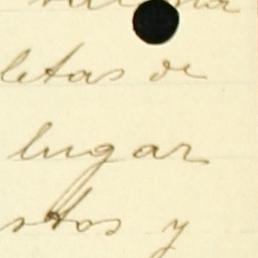 letas de
lugar
stos y